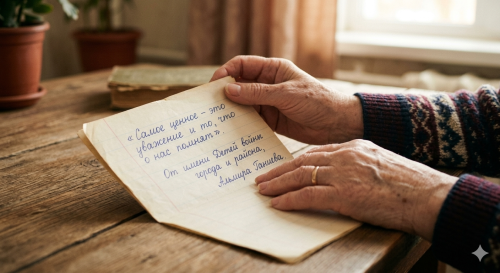 «Самое ценное – это
уважение и то, что
о нас помнят».
От имени Детей войны
города и района,
Альмира Ганиева.